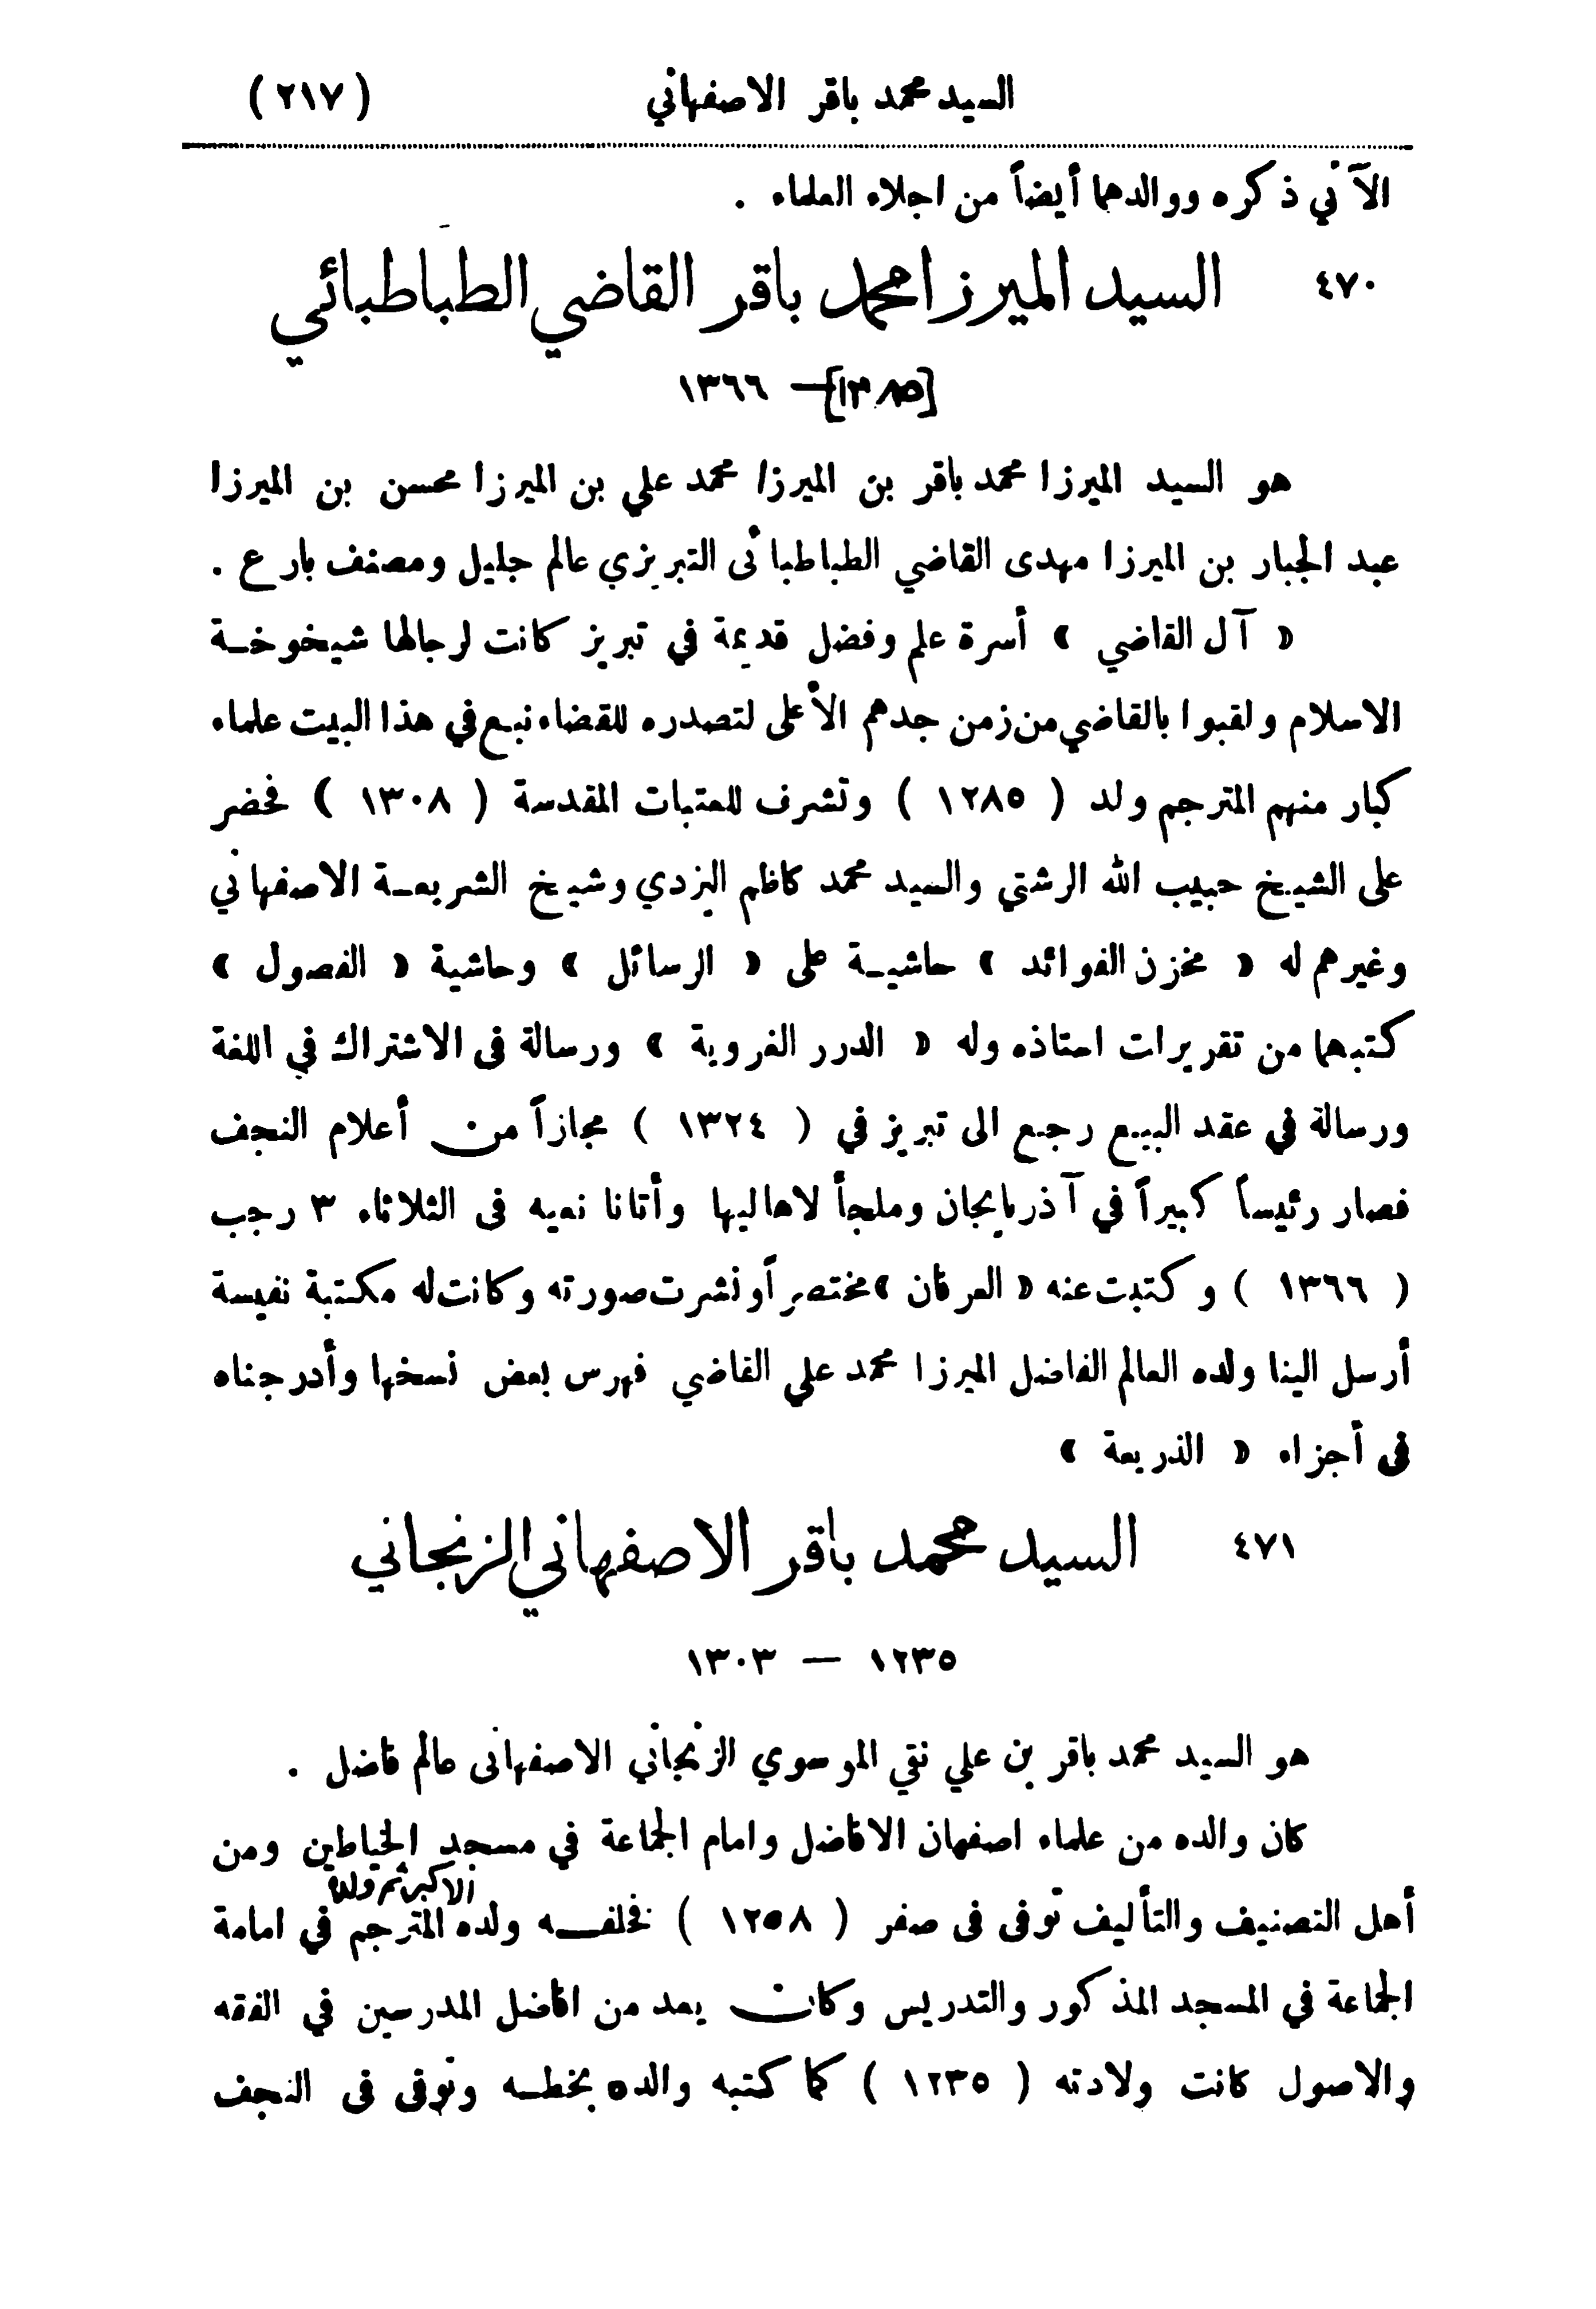 السيد محمد باقر الاصفهاني (٢١٧)
الآتي ذكره ووالدهما أيضاً من اجلاء العلماء .
٤٧٠ السيد الميرزا محمد باقر القاضي الطباطبائي
[١٢٨٥] — ١٣٦٦
هو السيد الميرزا محمد باقر بن الميرزا محمد علي بن الميرزا محسن بن الميرزا
عبد الجبار بن الميرزا مهدى القاضي الطباطبائى التبريزي عالم جليل ومصنف بارع .
« آل القاضي » أسرة علم وفضل قديمة في تبريز كانت لرجالها شيخوخـة
الاسلام ولقبوا بالقاضي من زمن جدهم الأعلى لتصدره للقضاء نبـغ في هذا البيت علماء
كبار منهم المترجم ولد ( ١٢٨٥ ) وتشرف للعتبات المقدسة ( ١٣٠٨ ) فحضر
على الشيـخ حبيب الله الرشتي والسيد محمد كاظم اليزدي وشيـخ الشريعـة الاصفهاني
وغيرهم له « مخزن الفوائد » حاشيـة على « الرسائل » وحاشية « الفصول »
كتبهما من تقريرات استاذه وله « الدرر الغروية » ورسالة فى الاشتراك في اللغة
ورسالة في عقد البيـع رجـع الى تبريز في ( ١٣٢٤ ) مجازاً من أعلام النجف
فصار رئيساً كبيراً في آذربايجان وملجأ لاهاليها وأتانا نعيه فى الثلاثاء ٣ رجب
( ١٣٦٦ ) وكتبت عنه « العرفان » مختصراً ونشرت صورته وكانت له مكتبة نفيسة
أرسل الينا ولده العالم الفاضل الميرزا محمد علي القاضي فهرس بعض نسخها وأدرجناه
فى أجزاء « الذريعة »
٤٧١ السيد محمد باقر الاصفهاني الزنجاني
١٢٣٥ — ١٣٠٣
هو السيد محمد باقر بن علي نقي الموسوي الزنجاني الاصفهانى عالم فاضل .
كان والده من علماء اصفهان الافاضل وامام الجماعة في مسجد الخياطين ومن
الاكبر ثم ولده
أهل التصنيف والتأليف توفى فى صفر ( ١٢٥٨ ) فخلفـــه ولده المترجم في امامة
الجماعة في المسجد المذكور والتدريس وكان يعد من افاضل المدرسين في الفقه
والاصول كانت ولادته ( ١٢٣٥ ) كما كتبه والده بخطـه وتوفى فى النجف